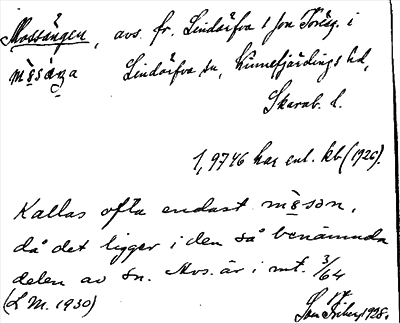 Mossängen, avs. fr. Lindärfva 1 i
mɷsäŋa Lindärfva sn, Kinnefjärdings hd,
Skarab. l.
1,9746 har enl. kb (1926).
Kallas ofta endast mɷsən,
då det ligger i den så benämnda
delen av sn. Avs. är i mt. 3/64
(L M. 1930)
1928.